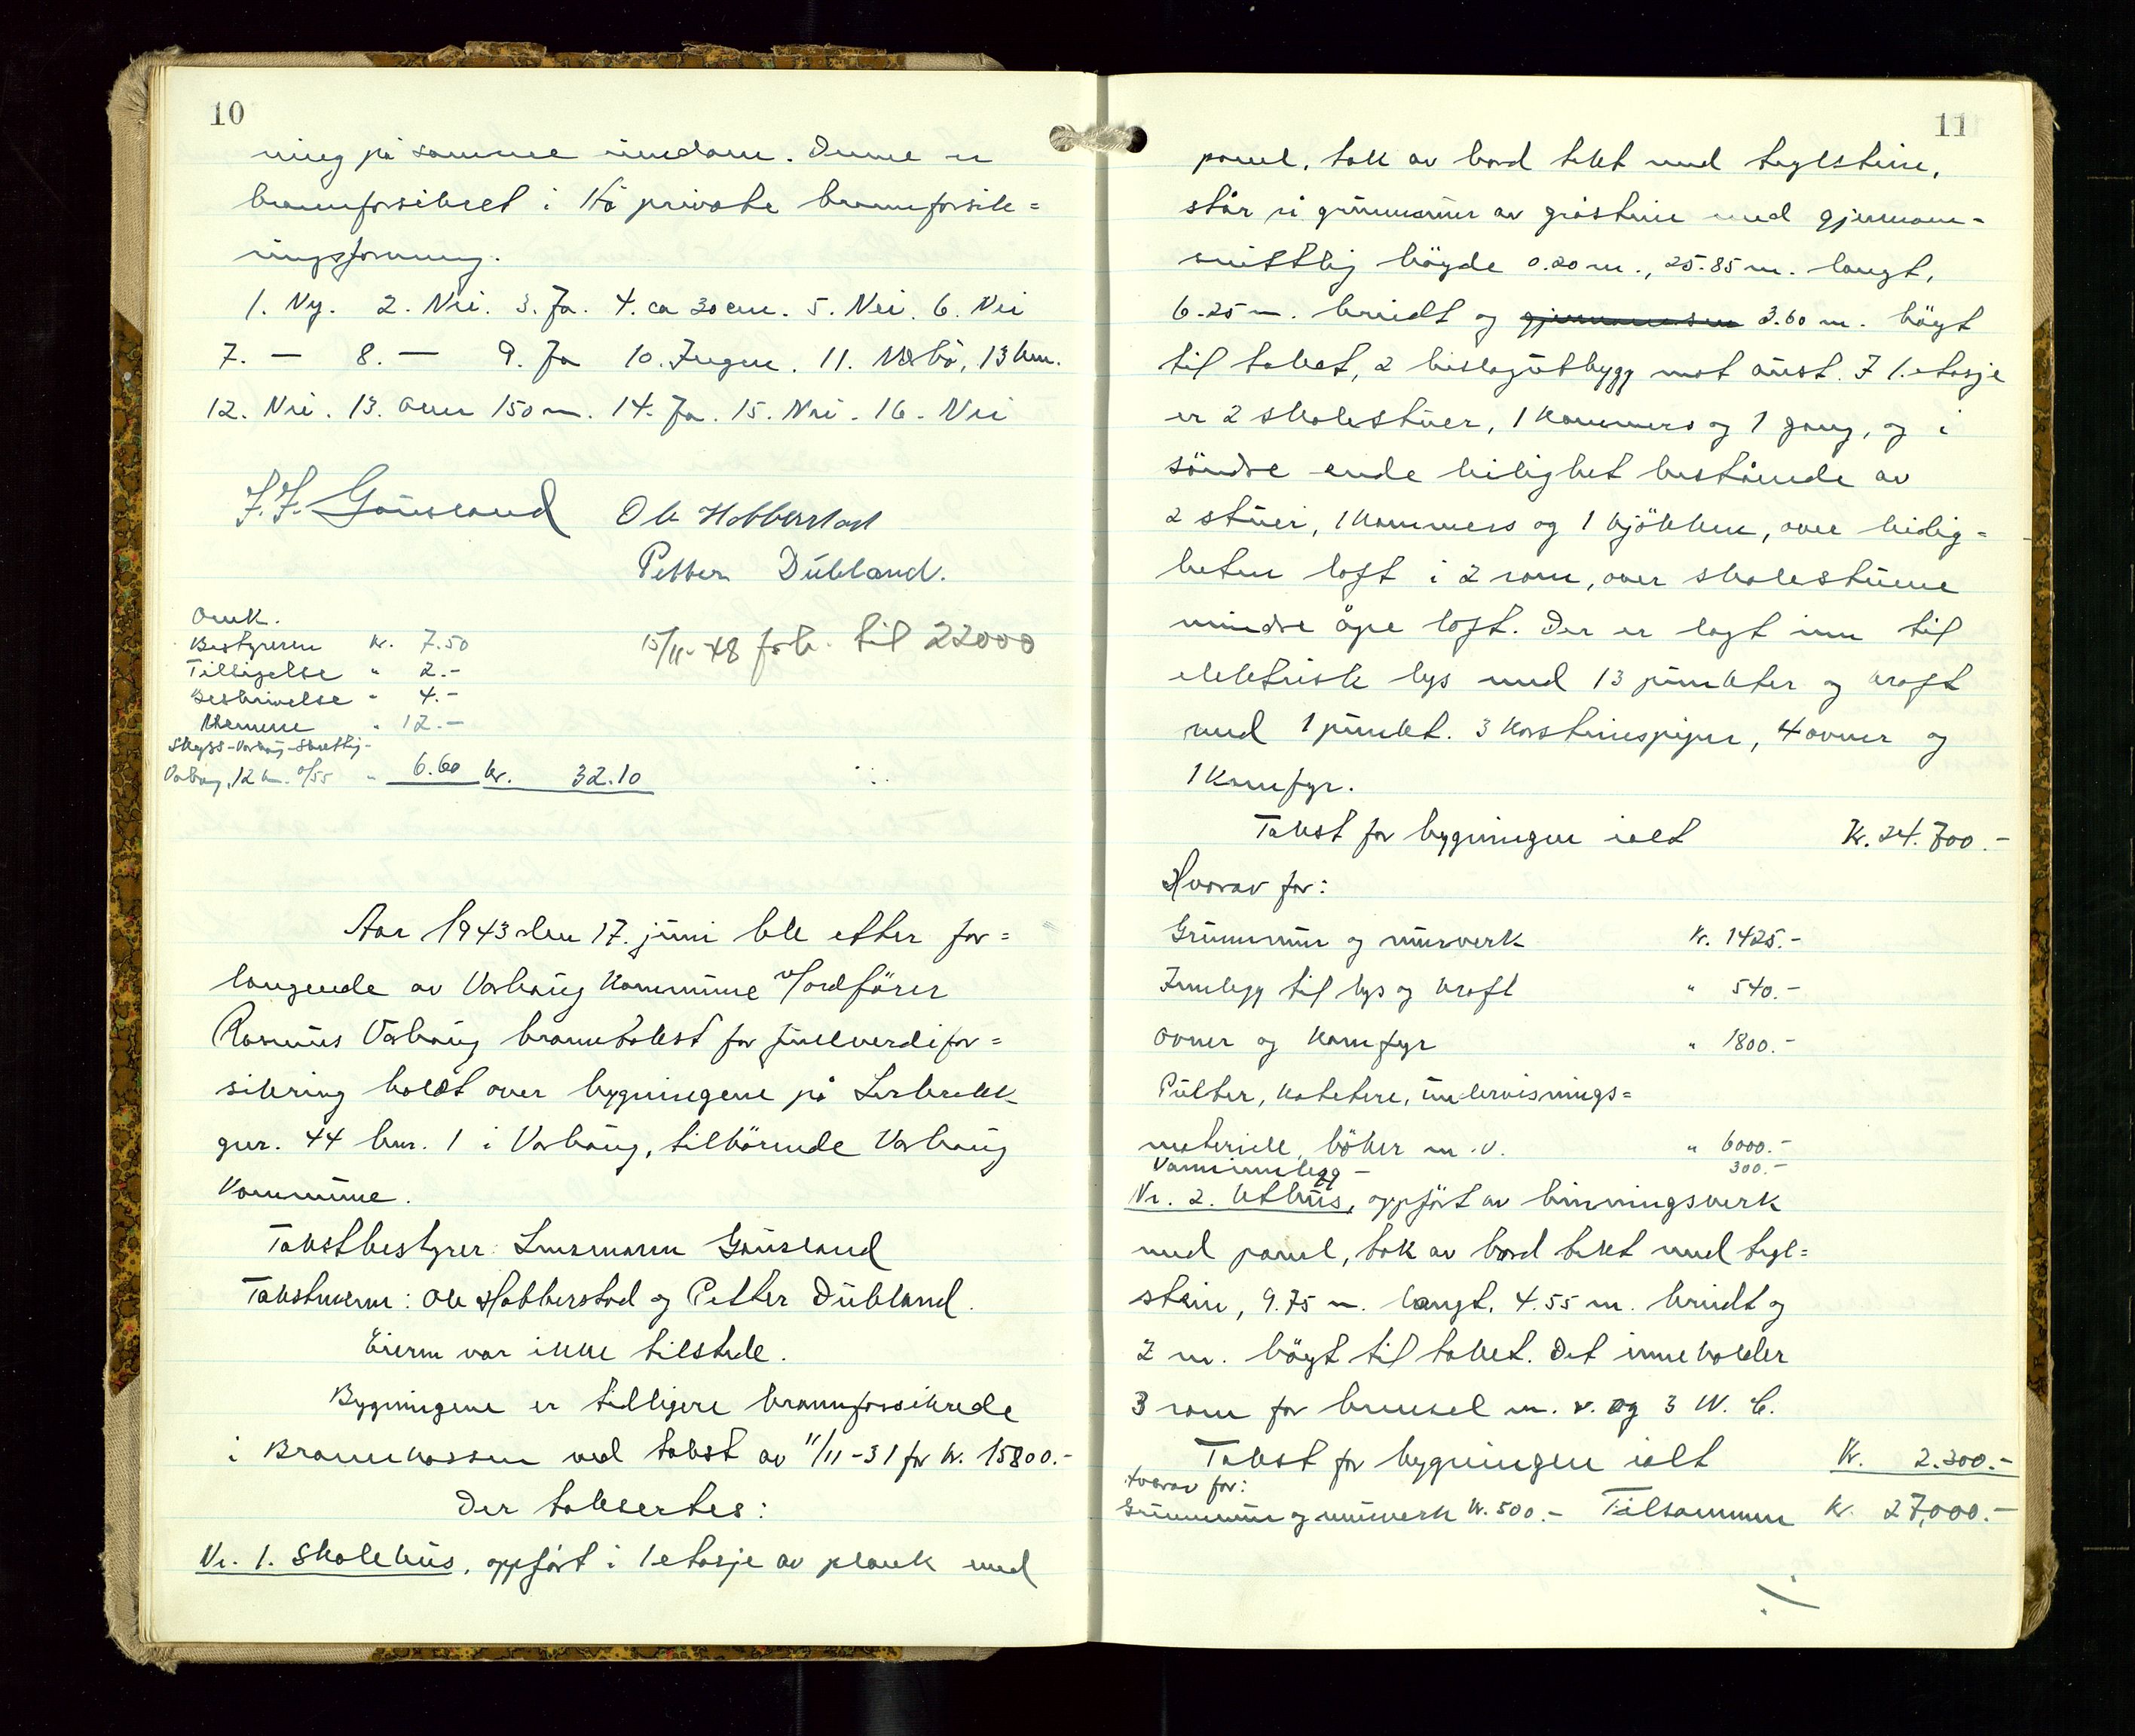 10
ning på samme eiendom. Denne er
brannforsikret i Hå private brannforsik=
ringsforening.
1. Ny. 2. Nei. 3. Ja. 4. ca 30 cm. 5. Nei. 6. Nei
7. — 8. — 9. Ja 10. Ingen. 11. Nærbø, 13 km.
12. Nei. 13. Over 150 m. 14. Ja. 15. Nei. 16. Nei
J. J. Gausland Ole Hobberstad
Petter Dubland.
Omk.
Bestyreren kr. 7.50
Tilsigelse " 2.-
Beskrivelse " 4.-
Mennene " 12.-
Skyss-Varhaug-
Varhaug, 12 km. a/55 " 6.60 kr. 32.10
15/11-48 forh. til 22000
Aar 1943 den 17. juni ble etter for=
langende av Varhaug kommune v/ordfører
Rasmus Varhaug branntakst for fullverdifor=
sikring holdt over bygningene på Lerbrekk
gnr. 44 bnr. 1 i Varhaug, tilhörende Varhaug
kommune.
Takstbestyrer: Lensmann Gausland
Takstmenn: Ole Hobberstad og Petter Dubland.
Eieren var ikke tilstede.
Bygningene er tidligere brannforsikrede
i Brannkassen ved takst av 11/11-31 for kr. 15800.-
Der taksertes:
Nr. 1. Skolehus, oppfört i 1 etasje av plank med
11
panel, takk av bord tekt med teglstein,
står på grunnmur av gråstein med gjennom-
snittlig höyde 0.20 m., 25.85 m. langt,
6.25 m. breidt og gjennomsn 3.60 m. högt
til taket, 2 bislagutbygg mot aust. I 1. etasje
er 2 skolestuer, 1 kammers og 1 gang, og i
söndre ende leilighet bestående av
2 stuer, 1 kammers og 1 kjökken, over leilig=
heten loft i 2 rom, over skolestuene
mindre åpe loft. Der er lagt inn til
elektrisk lys med 13 punkter og kraft
med 1 punkt. 3 korsteinspiper, 4 ovner og
1 komfyr.
Takst for bygningen ialt Kr. 24.700.-
Hvorav for:
Grunnmur og murverk Kr. 1425.-
Innlegg til lys og kraft " 540.-
Ovner og komfyr " 1800.-
Pulter, katetere, undervisnings=
materiell, böker m.v. " 6000.-
Vanninnlegg - 300.-
Nr. 2. Uthus, oppfört av binningsverk
med panel, tak av bord tekt med tegl=
stein, 9.75 m. langt, 4.55 m. breidt og
2 m. högt til taket. Det inneholder
3 rom for brensel m. v. og 3 W. C.
Takst for bygningen ialt Kr. 2.300.-
Hvorav for:
Grunnmur og murverk kr. 500.- Tilsammen Kr. 27,000.-